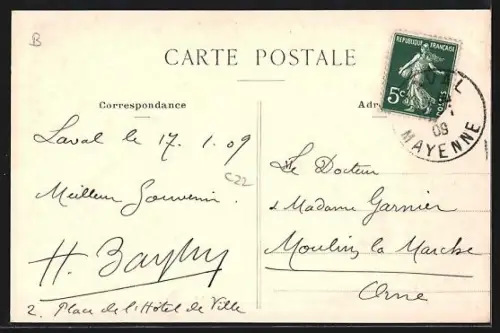 B
CARTE POSTALE
REPUBLIQUE FRANÇAISE
5c
POSTES
Correspondance
Adr
LAVAL
09
MAYENNE
Laval le 17. 1. 09
Meilleur Souvenir.
C22
H.
2. Place de l'Hôtel de Ville
Le Docteur
& Madame Garnier
Moulins la Marche
Orne